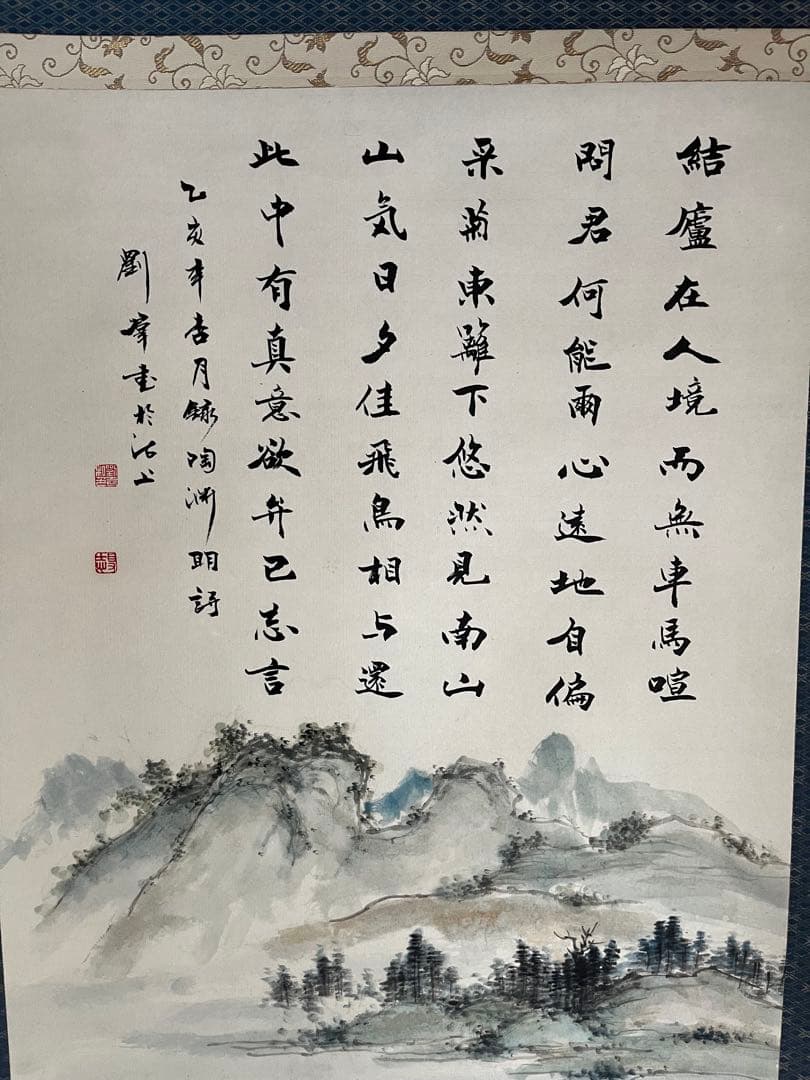 結廬在人境而無車馬喧
問君何能爾心遠地自偏
采菊東籬下悠然見南山
山氣日夕佳飛鳥相与還
此中有真意欲弁已忘言
乙亥年杏月錄陶渊明詩
劉 書於沽上